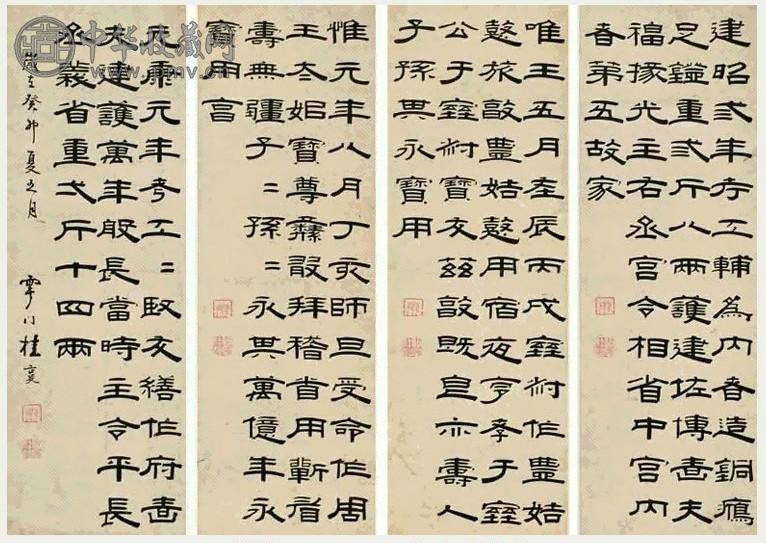 建昭弎年考工輔為內者造銅鴈
足鐙重弎斤八兩護建佐博嗇夫
福掾光主右丞宮令相省中宮內
者第五故家
唯王五月在辰丙戌室叔作豐姞
憝旅敦豐姞憝用宿夜享孝于室
公于室叔寶友茲敦既皀亦壽人
子孫其永寶用
惟元年八月丁亥師旦受命作周
王太姒寶尊彝敢拜稽首用蘄眉
壽無疆子=孫=永其萬億年永
寶用享
元康元年考工=賢友繕作府嗇
夫建護萬年般長當時主令平長
丞義省重弍斤十四兩
歲在癸卯夏五月 雩門桂馥
中华收藏网